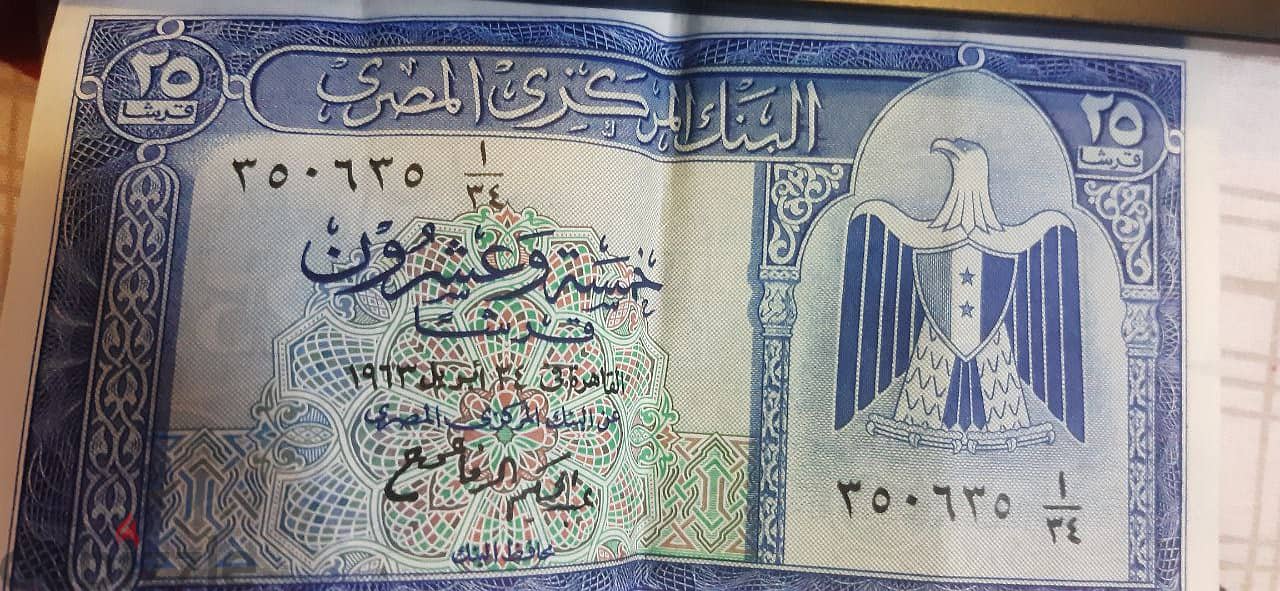 ٢٥
قرشا
البنك المركزى المصرى
٢٥
قرشا
٣٥٠٦٣٥ ١/٣٤
خمسة وعشرون
قرشاً
القاهرة فى ٢٤ ابريل ١٩٦٣
عن البنك المركزى المصرى
محافظ البنك
٣٥٠٦٣٥ ١/٣٤